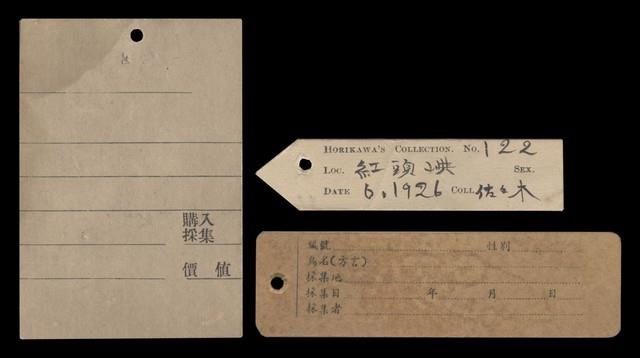 購入
採集
價値
HORIKAWA'S COLLECTION. No. 122
LOC. 紅頭嶼 SEX.
DATE 6.1926 COLL. 佐々木
編號 性別
鳥名(方言)
採集地
採集日 年 月 日
採集者